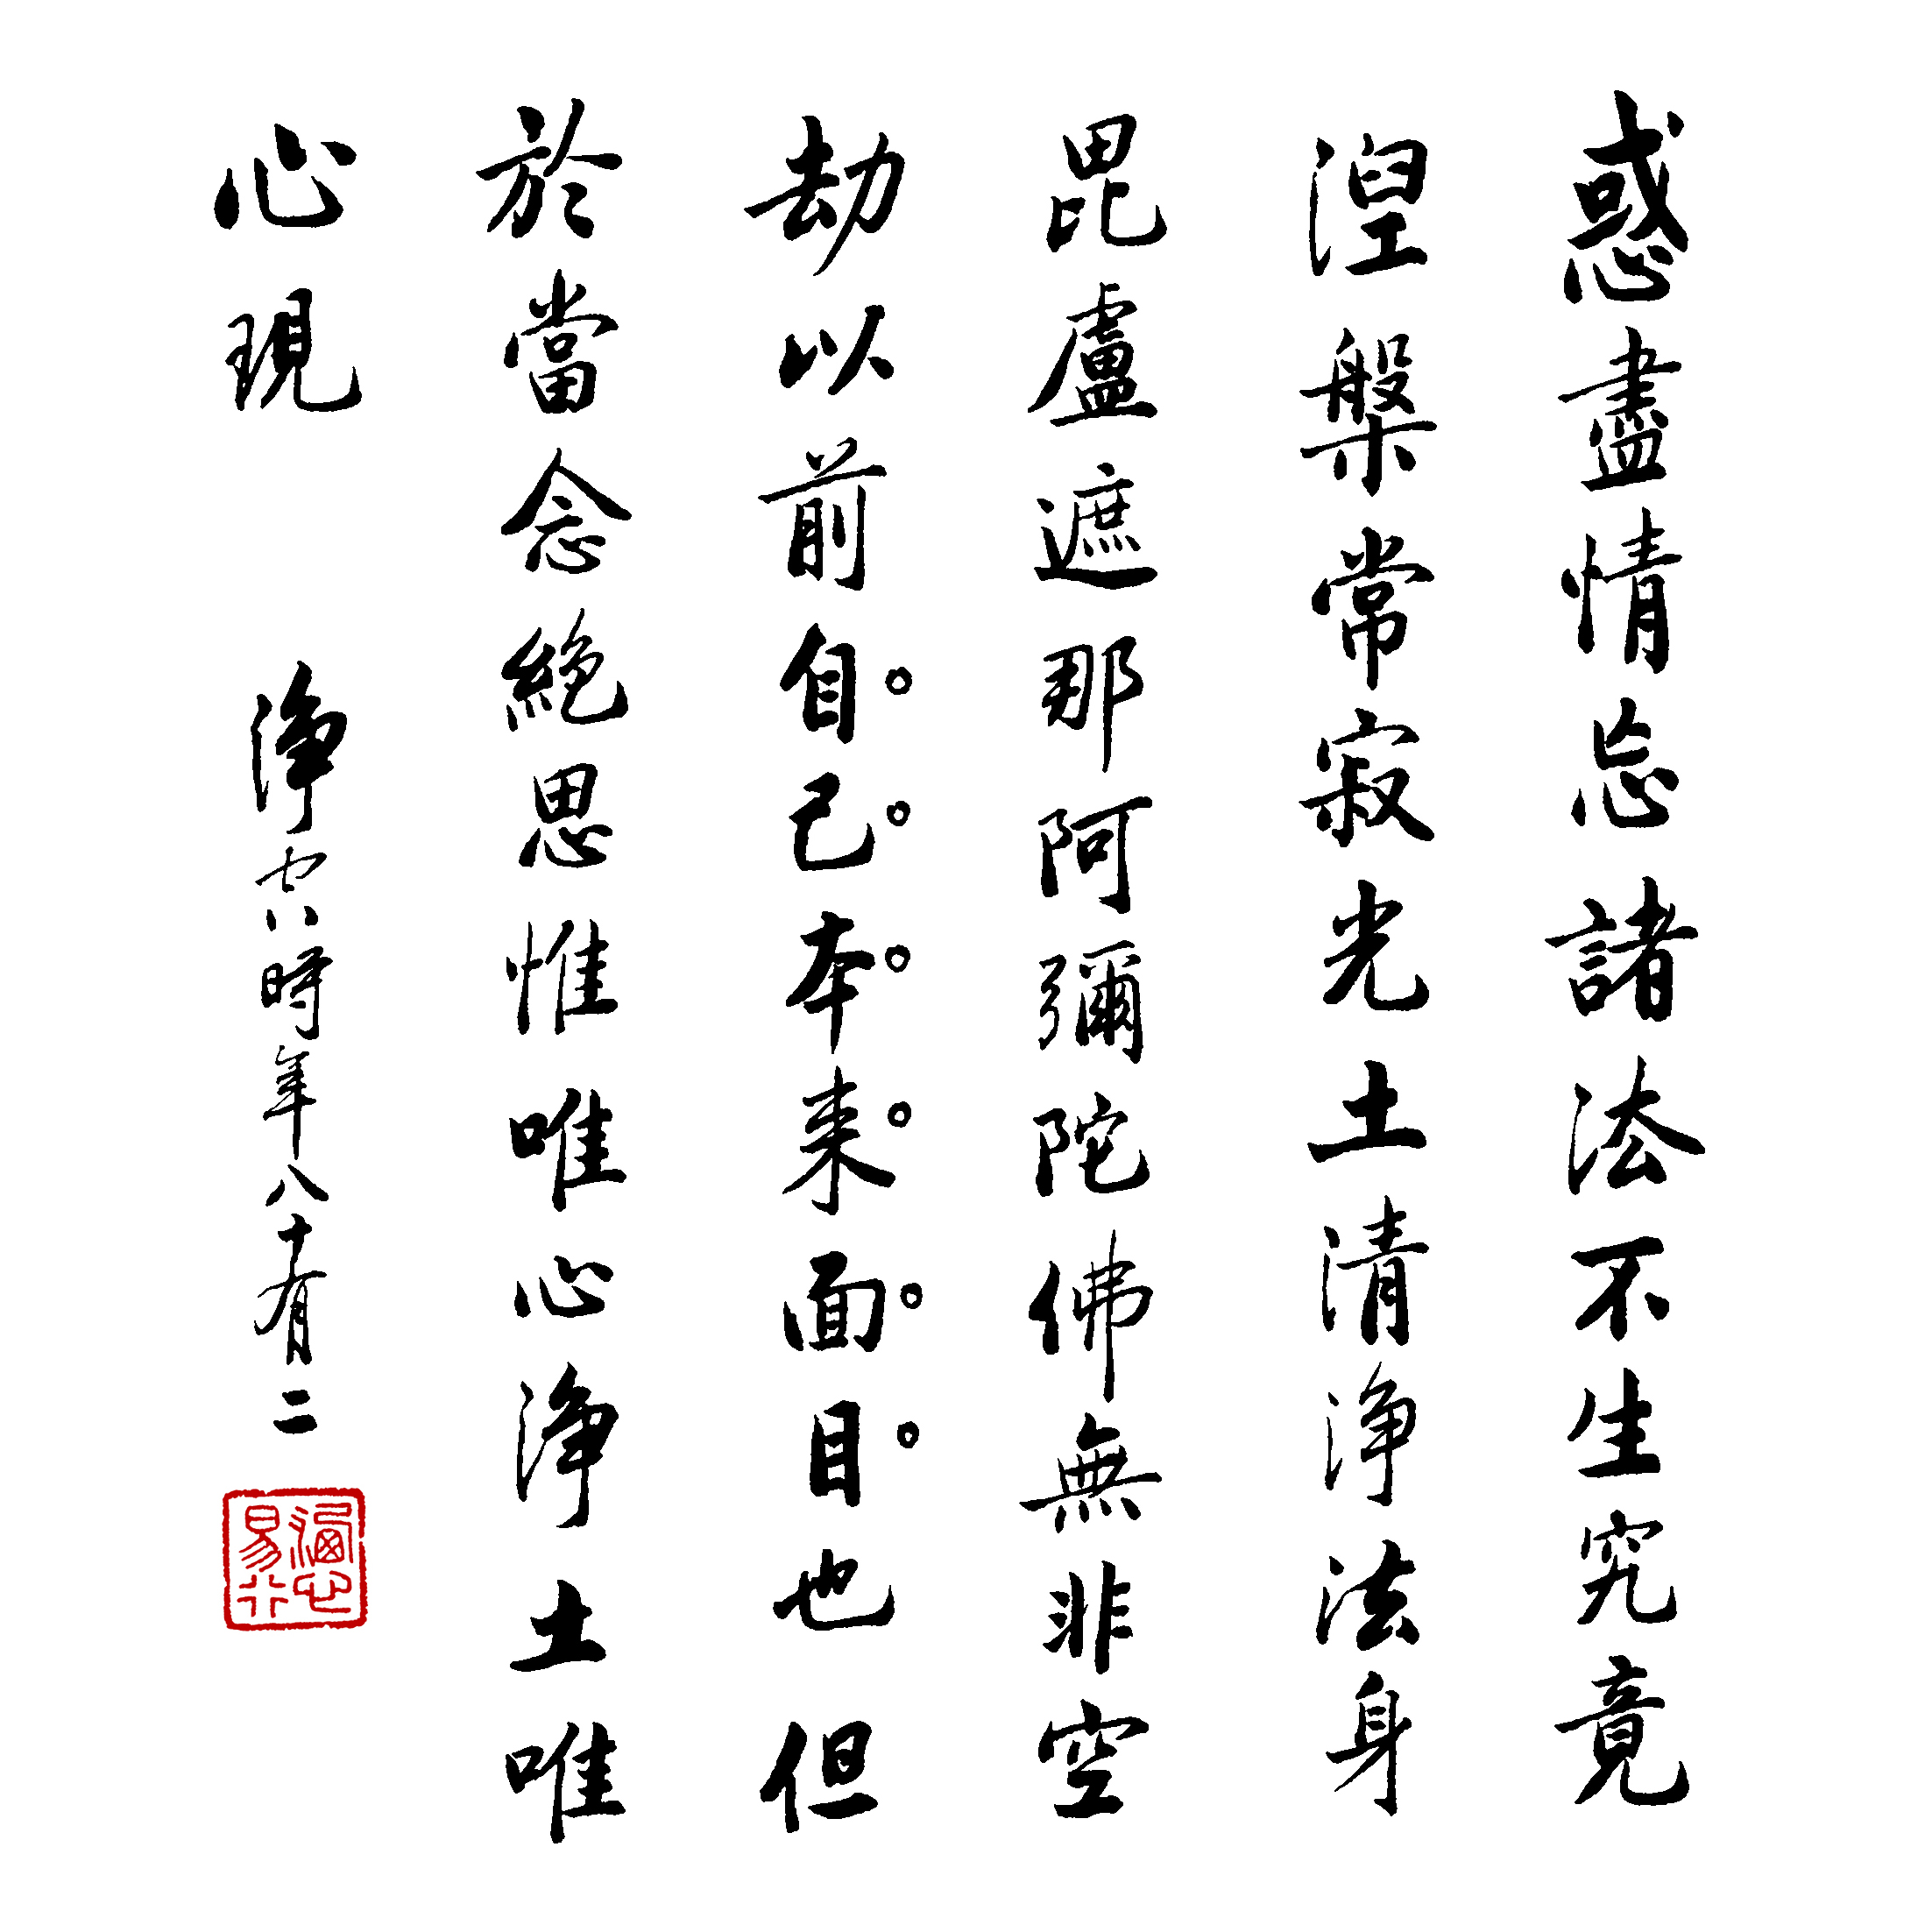 惑盡情忘諸法不生究竟
涅槃常寂光土清淨法身
毘盧遮那阿彌陀佛無非空
劫以前自己本来面目也但
於當念絕思惟唯心淨土唯
心現
淨空 時年八十有二